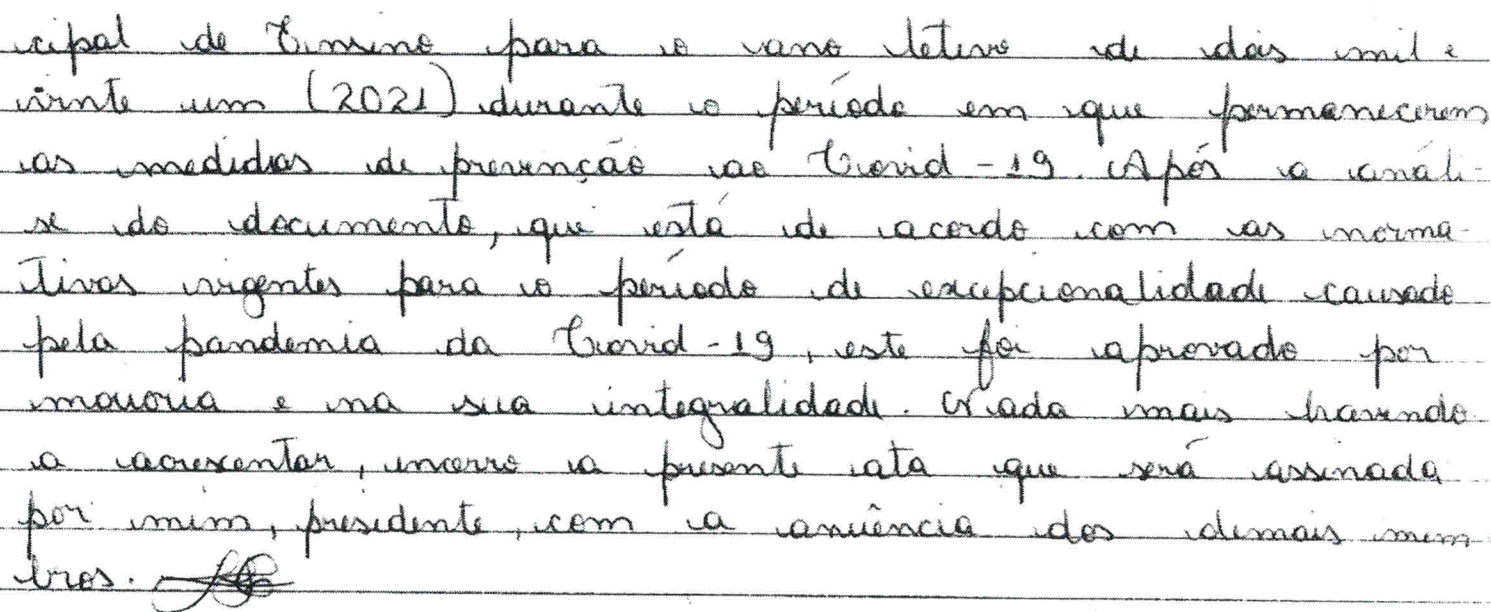 cipal de Ensino para o ano letivo de dois mil e
vinte um (2021) durante o período em que permanecerem
as medidas de prevenção ao Covid-19. Após a análi-
se do documento, que está de acordo com as norma-
tivas vigentes para o período de excepcionalidade causado
pela pandemia da Covid-19, este foi aprovado por
maioria e na sua integralidade. Nada mais havendo
a acrescentar, encerro a presente ata que será assinada
por mim, presidente, com a anuência dos demais mem
bros.